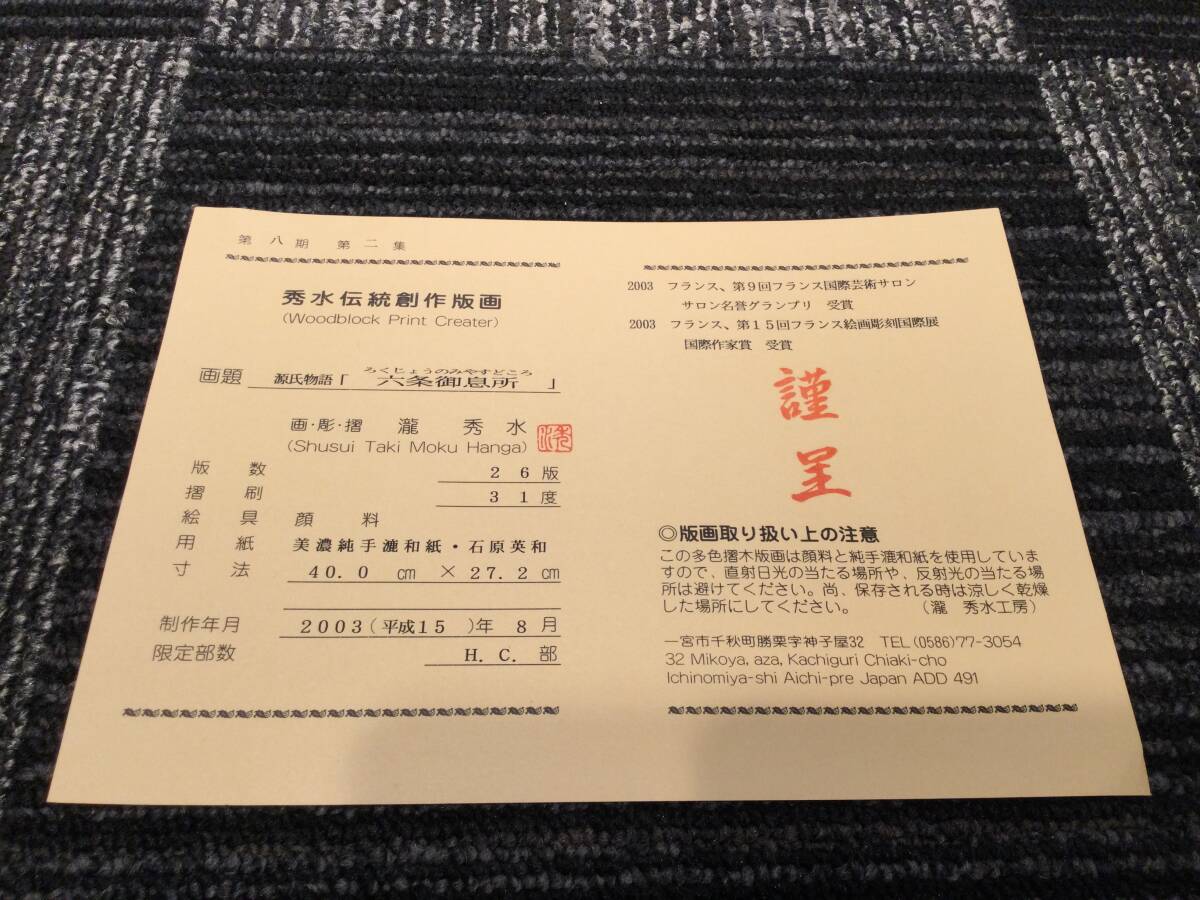 第八期 第二集
秀水伝統創作版画
(Woodblock Print Creater)
ろくじょうのみやすどころ
画題 源氏物語「 六条御息所 」
画・彫・摺 瀧 秀 水
(Shusui Taki Moku Hanga)
版 数 26版
摺 刷 31度
絵 具 顔 料
用 紙 美濃純手漉和紙・石原英和
寸 法 40.0 ㎝ × 27.2㎝
制作年月 2003(平成15 )年 8月
限定部数 H.C. 部
2003 フランス、第9回フランス国際芸術サロン
サロン名誉グランプリ 受賞
2003 フランス、第15回フランス絵画彫刻国際展
国際作家賞 受賞
謹
呈
◎版画取り扱い上の注意
この多色摺木版画は顔料と純手漉和紙を使用していま
すので、直射日光の当たる場所や、反射光の当たる場
所は避けてください。尚、保存される時は涼しく乾燥
した場所にしてください。 (瀧 秀水工房)
一宮市千秋町勝栗字神子屋32 TEL(0586)77-3054
32 Mikoya, aza, Kachiguri Chiaki-cho
Ichinomiya-shi Aichi-pre Japan ADD 491